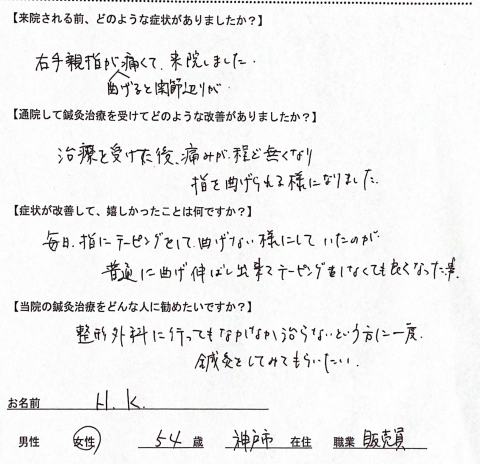 【来院される前、どのような症状がありましたか？】
右手親指が痛くて、来院しました。
曲げると関節辺りが
【通院して鍼灸治療を受けてどのような改善がありましたか？】
治療を受けた後、痛みが、程ど無くなり
指を曲げられる様になりました。
【症状が改善して、嬉しかったことは何ですか？】
毎日、指にテーピングをして、曲げない様にしていたのが
普通に曲げ伸ばし出来てテーピングをしなくても良くなった事。
【当院の鍼灸治療をどんな人に勧めたいですか？】
整形外科に行ってもなかなか治らないという方に一度、
鍼灸をしてみてもらいたい。
お名前 H.K.
男性 女性 54 歳 神戸市 在住 職業 販売員